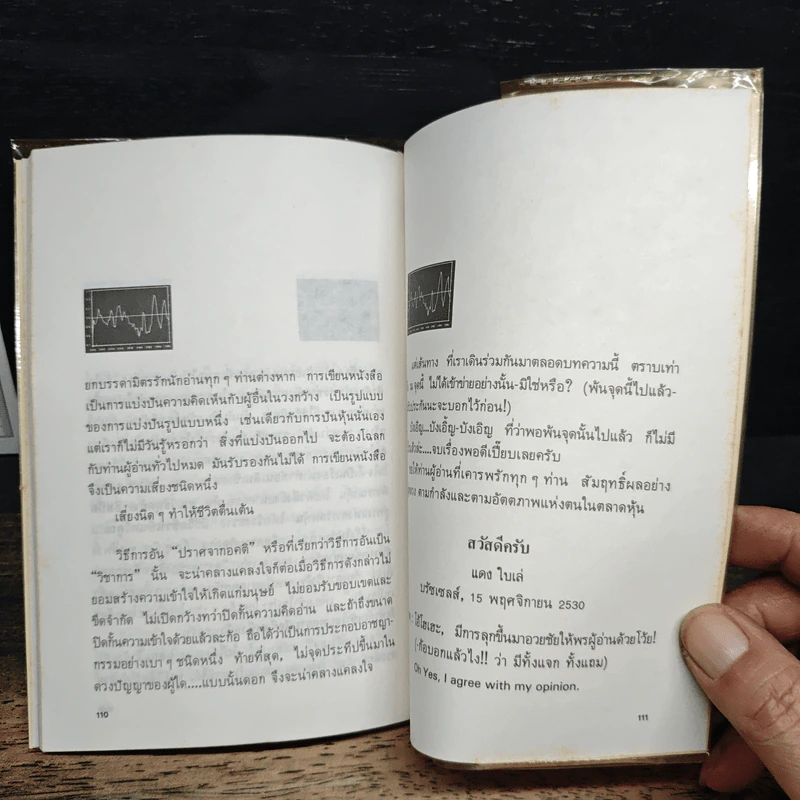 ยกบรรดามิตรรักนักอ่านทุก ๆ ท่านต่างหาก การเขียนหนังสือ
เป็นการแบ่งปันความคิดเห็นกับผู้อื่นในวงกว้าง เป็นรูปแบบ
ของการแบ่งปันรูปแบบหนึ่ง เช่นเดียวกับการปันหุ้นนั่นเอง
แต่เราก็ไม่มีวันรู้หรอกว่า สิ่งที่แบ่งปันออกไป จะต้องโฉลก
กับท่านผู้อ่านทั่วไปหมด มันรับรองกันไม่ได้ การเขียนหนังสือ
จึงเป็นความเสี่ยงชนิดหนึ่ง
เสี่ยงนิด ๆ ทำให้ชีวิตตื่นเต้น
วิธีการอัน “ปราศจากอคติ” หรือที่เรียกว่าวิธีการอันเป็น
“วิชาการ” นั้น จะนำคลางแคลงใจก็ต่อเมื่อวิธีการดังกล่าวไม่
ยอมสร้างความเข้าใจให้เกิดแก่มนุษย์ ไม่ยอมรับขอบเขตและ
ขีดจำกัด ไม่เปิดกว้างทว่าปิดกั้นความคิดอ่าน และถ้าถึงขนาด
ปิดกั้นความเข้าใจด้วยแล้วละก้อ ถือได้ว่าเป็นการประกอบอาชญา-
กรรมอย่างเบา ๆ ชนิดหนึ่ง ท้ายที่สุด, ไม่จุดประทีปขึ้นมาใน
ดวงปัญญาของผู้ใด.....แบบนั้นดอก จึงจะนำคลางแคลงใจ
110
แต่เส้นทาง ที่เราเดินร่วมกันมาตลอดบทความนี้ ตราบเท่า
ณ จุดนี้ ไม่ได้เข้าข่ายอย่างนั้น-มิใช่หรือ? (พ้นจุดนี้ไปแล้ว-
ประกันนะจะบอกไว้ก่อน!)
บังเอิญ...บังเอิ้ญ-บังเอิญ ที่ว่าพอพ้นจุดนั้นไปแล้ว ก็ไม่มี
....จบเรื่องพอดีเปี๊ยบเลยครับ
ให้ท่านผู้อ่านที่เคารพรักทุก ๆ ท่าน สัมฤทธิ์ผลอย่าง
ตามกำลังและตามอัตตภาพแห่งตนในตลาดหุ้น
สวัสดีครับ
แดง ใบเล่
บรัซเซลส์, 15 พฤศจิกายน 2530
- โอ้โฮเฮะ, มีการลุกขึ้นมาอวยชัยให้พรผู้อ่านด้วยโว้ย!
(-ก้อบอกแล้วไง!! ว่า มีทั้งแจก ทั้งแถม)
Oh Yes, I agree with my opinion.
111